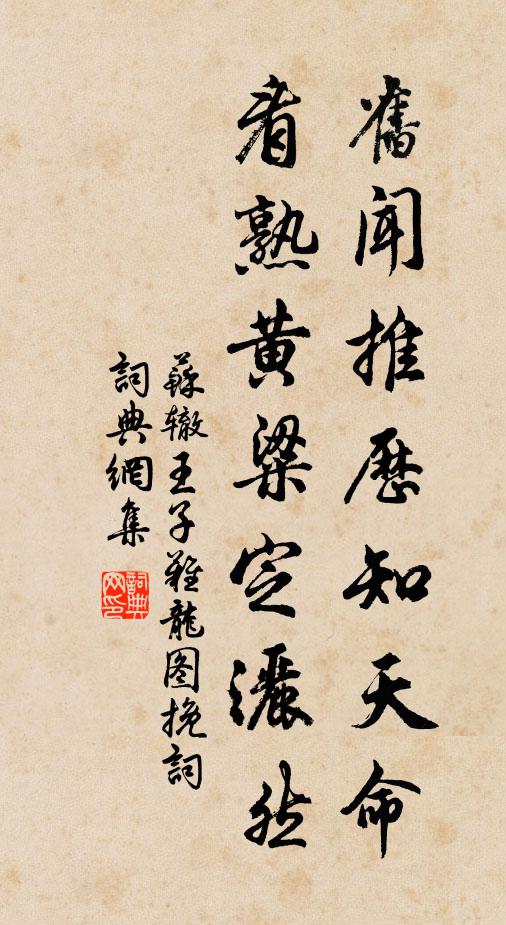 舊聞推歷知天命
看熟黃粱定灑然
蘇辙王子難龍图挽詞
詞典網集
詞典
网印